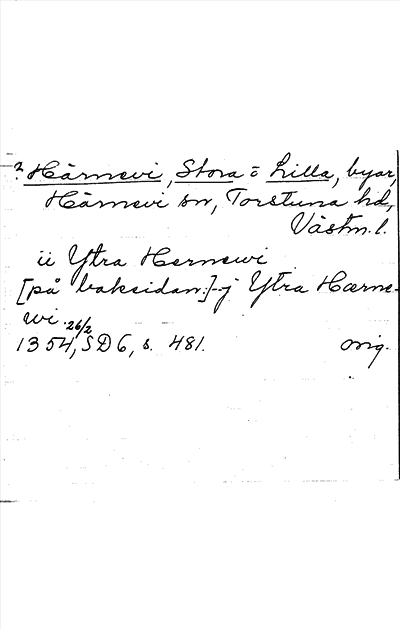 ? Härnevi, Stora o Lilla, byar,
Härnevi sn, Torstuna hd,
Västm. l.
ii Ytra Hernewi
[på baksidan:] -j Ytra Hærne-
wi. 26/2
1354, SD 6, s. 481. orig.